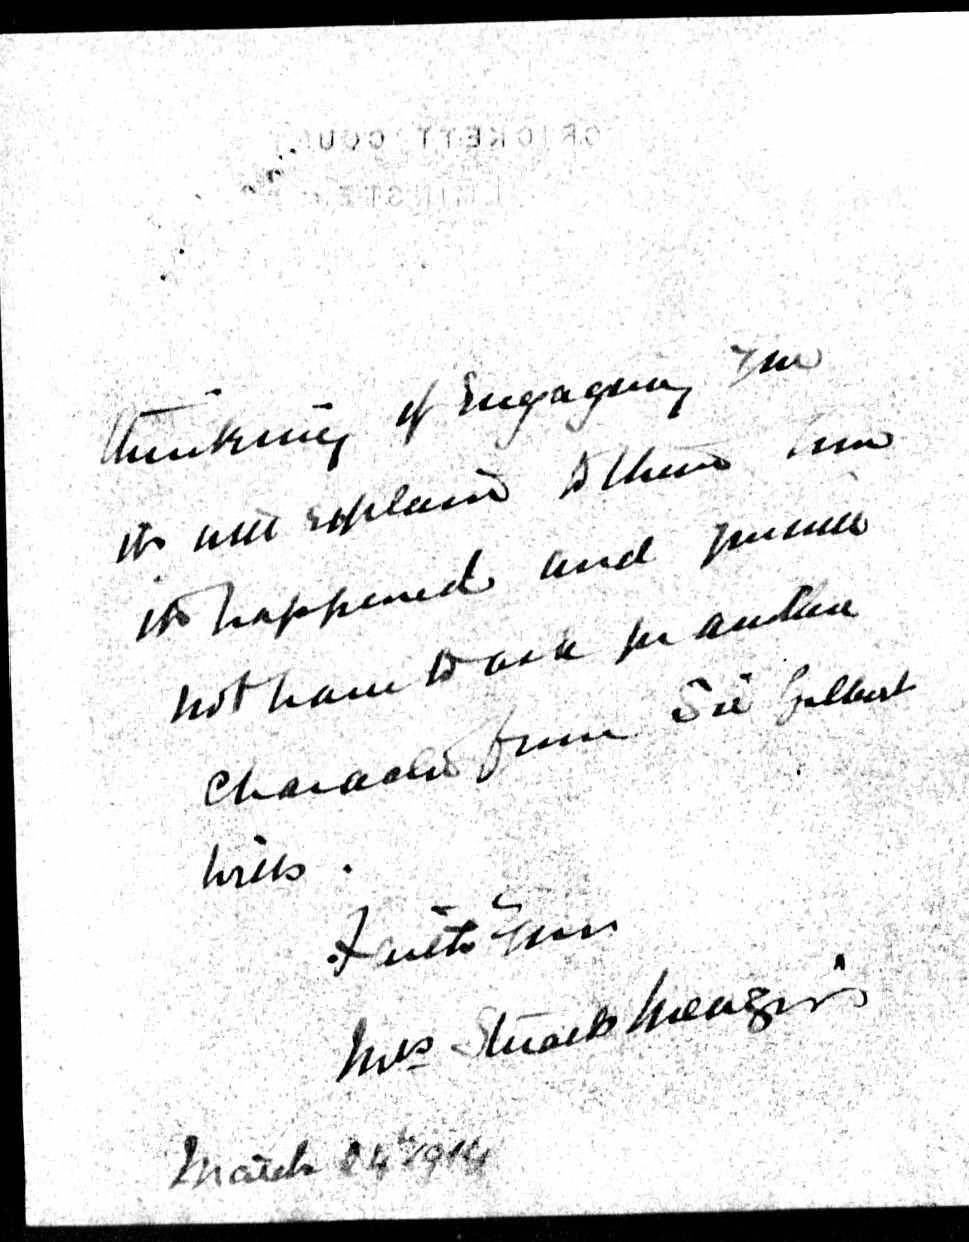 CRICKETT COURT
ILMINSTER
thinking of Engaging you
it will explain to them how
it happened and you will
not have to ask for another
character from Sir Gilbert
Wills.
Faith yours
Mrs Stuart Menzies
March 24th 1914